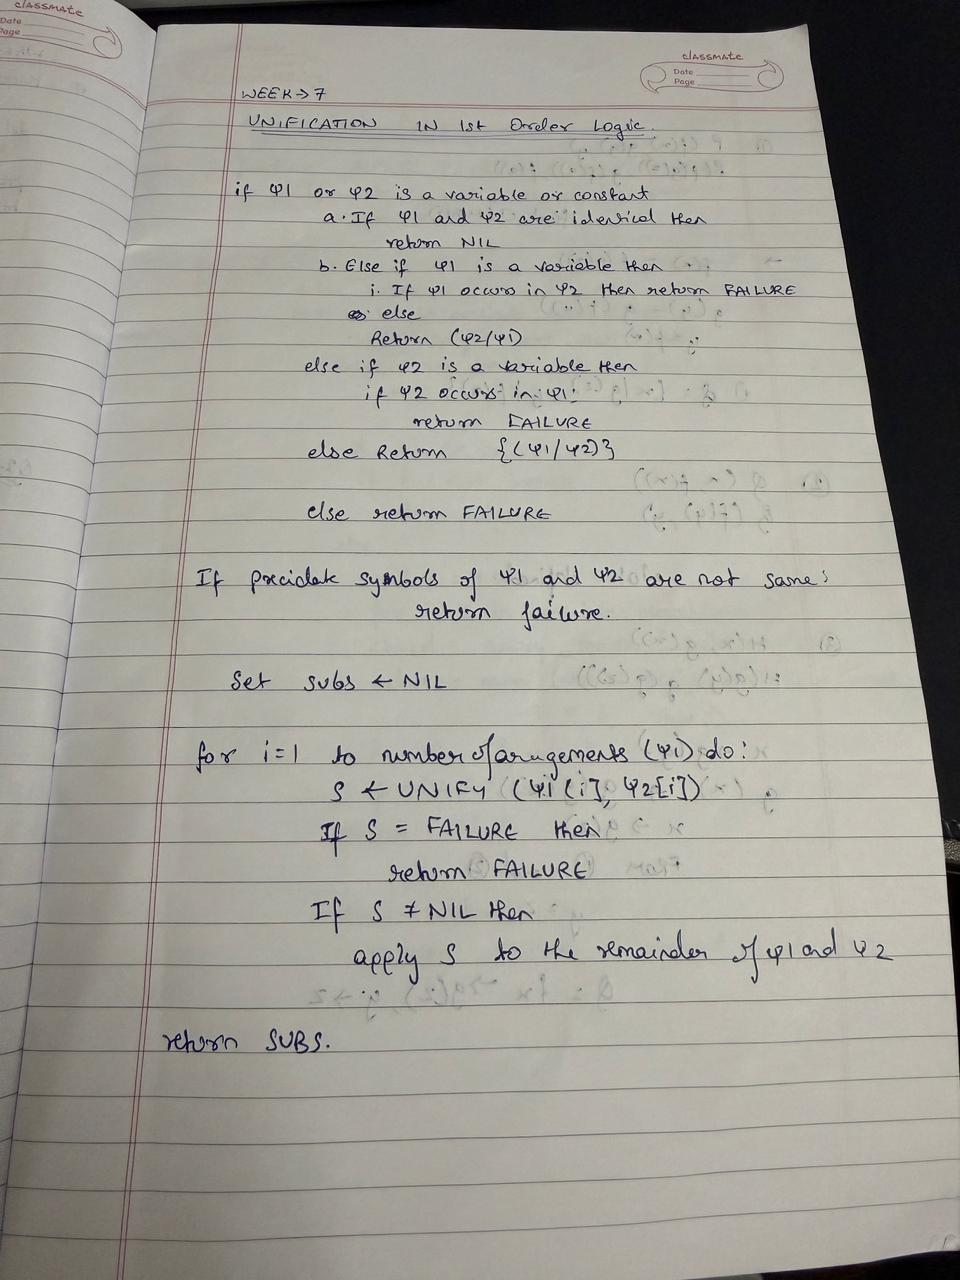 classmate
Date
Page
classmate
Date
Page
WEEK→7
UNIFICATION IN 1st Order Logic.
if Ψ1 or Ψ2 is a variable or constant
a. If Ψ1 and Ψ2 are identical then
return NIL
b. Else if Ψ1 is a variable then
i. If Ψ1 occurs in Ψ2 then return FAILURE
else
Return (Ψ2/Ψ1)
else if Ψ2 is a variable then
if Ψ2 occurs in Ψ1:
return FAILURE
else Return {(Ψ1/Ψ2)}
else return FAILURE
If precidate symbols of Ψ1 and Ψ2 are not same:
return failure.
Set subs ← NIL
for i=1 to number of arugements (Ψi) do:
S ← UNIFY (Ψ1(i], Ψ2[i])
If S = FAILURE then
return FAILURE
If S ≠ NIL then
apply S to the remainder of Ψ1 and Ψ2
return SUBS.